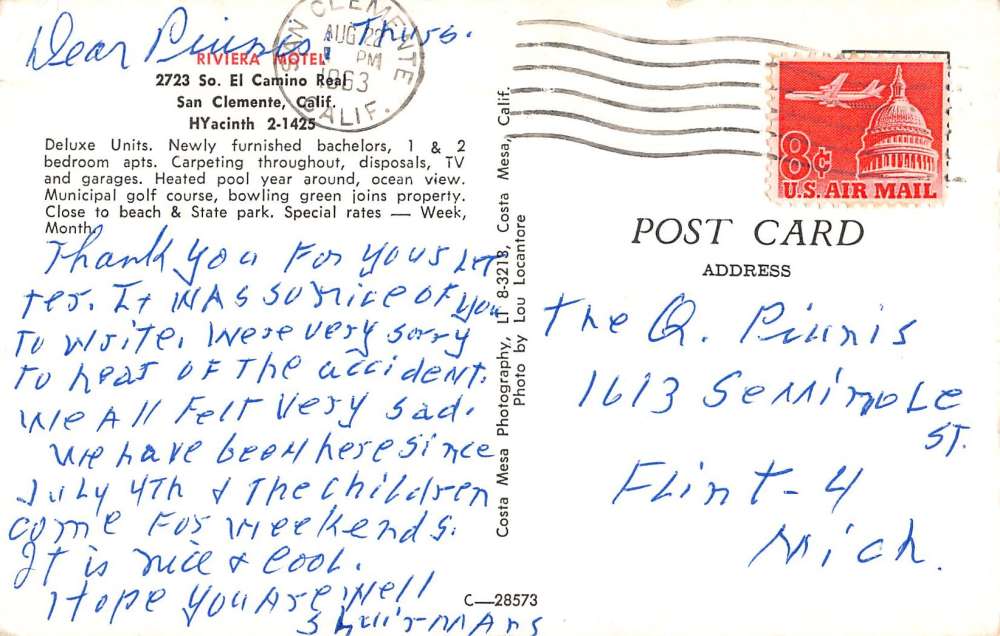 Dear Piunis Thurs.
RIVIERA MOTEL
2723 So. El Camino Real
San Clemente, Calif.
HYacinth 2-1425
Deluxe Units. Newly furnished bachelors, 1 & 2
bedroom apts. Carpeting throughout, disposals, TV
and garages. Heated pool year around, ocean view.
Municipal golf course, bowling green joins property.
Close to beach & State park. Special rates — Week,
Month.
Thank you For yous Let
ter. It was so nice of you
to write. Were very sorry
to hear of the accident.
We All Felt very sad.
We have been here since
July 4th & the children
come For weekends.
It is nice & cool.
Hope you Are Well
SAN CLEMENTE
AUG 22
PM
1963
CALIF.
Costa Mesa Photography, LI 8-3213, Costa Mesa, Calif.
Photo by Lou Locantore
C—28573
8¢
U.S. AIR MAIL
POST CARD
ADDRESS
The Q. Piunis
1613 Seminole
St.
Flint-4
Mich.